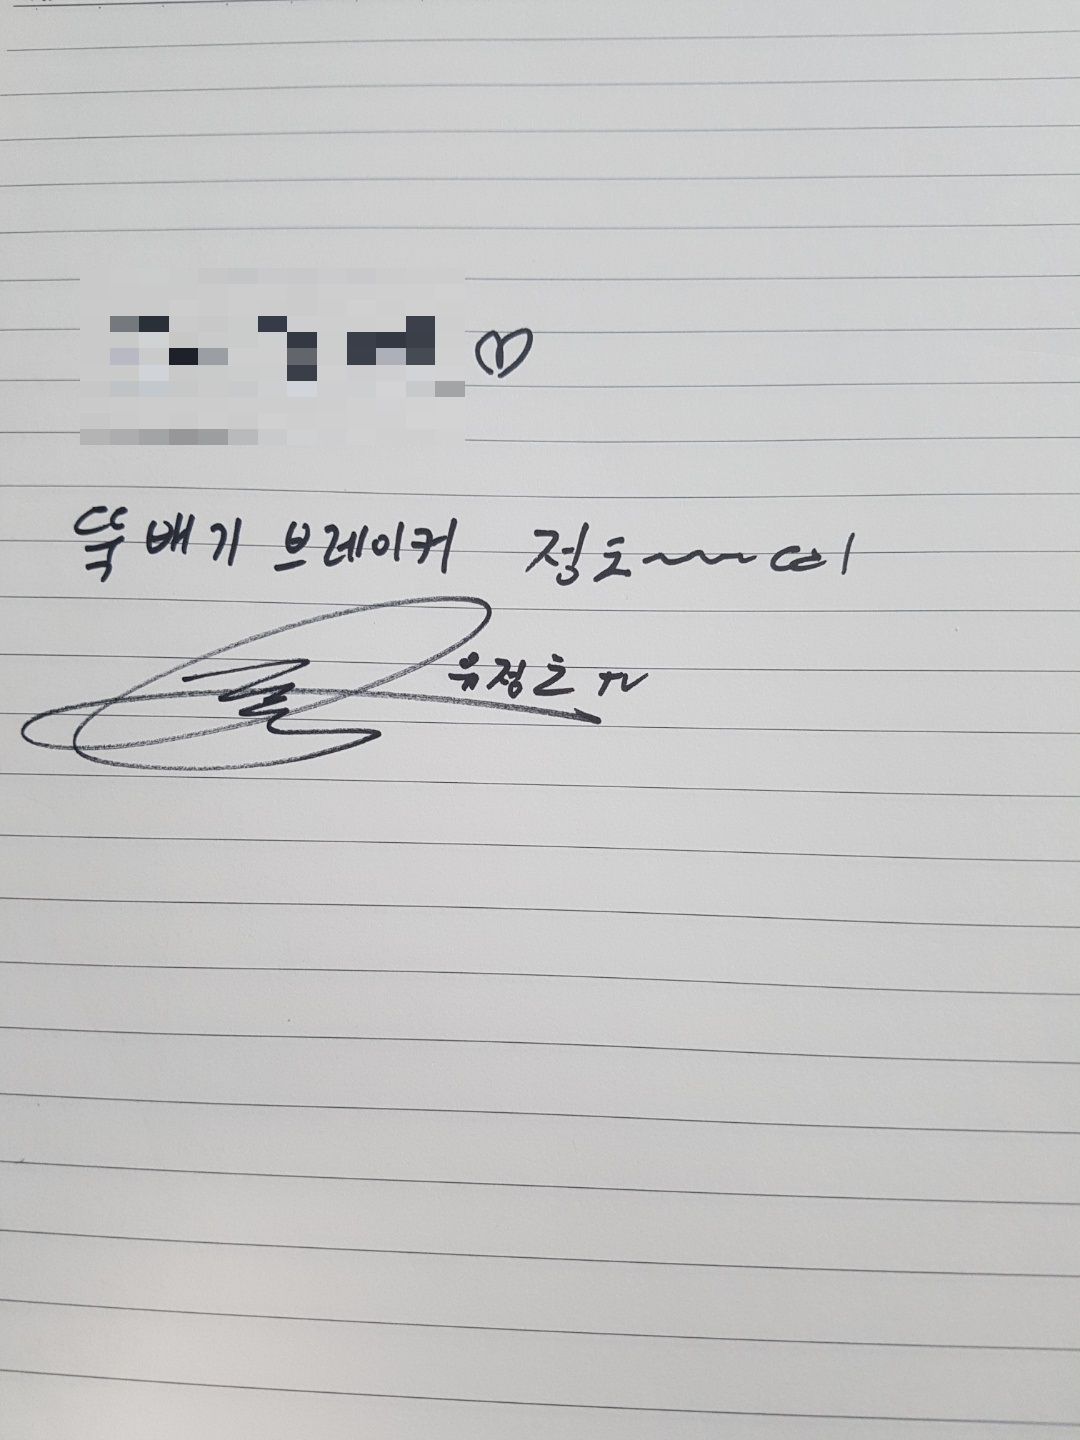 ♡
뚝배기 브레이커 정호~~~
유정호 TV